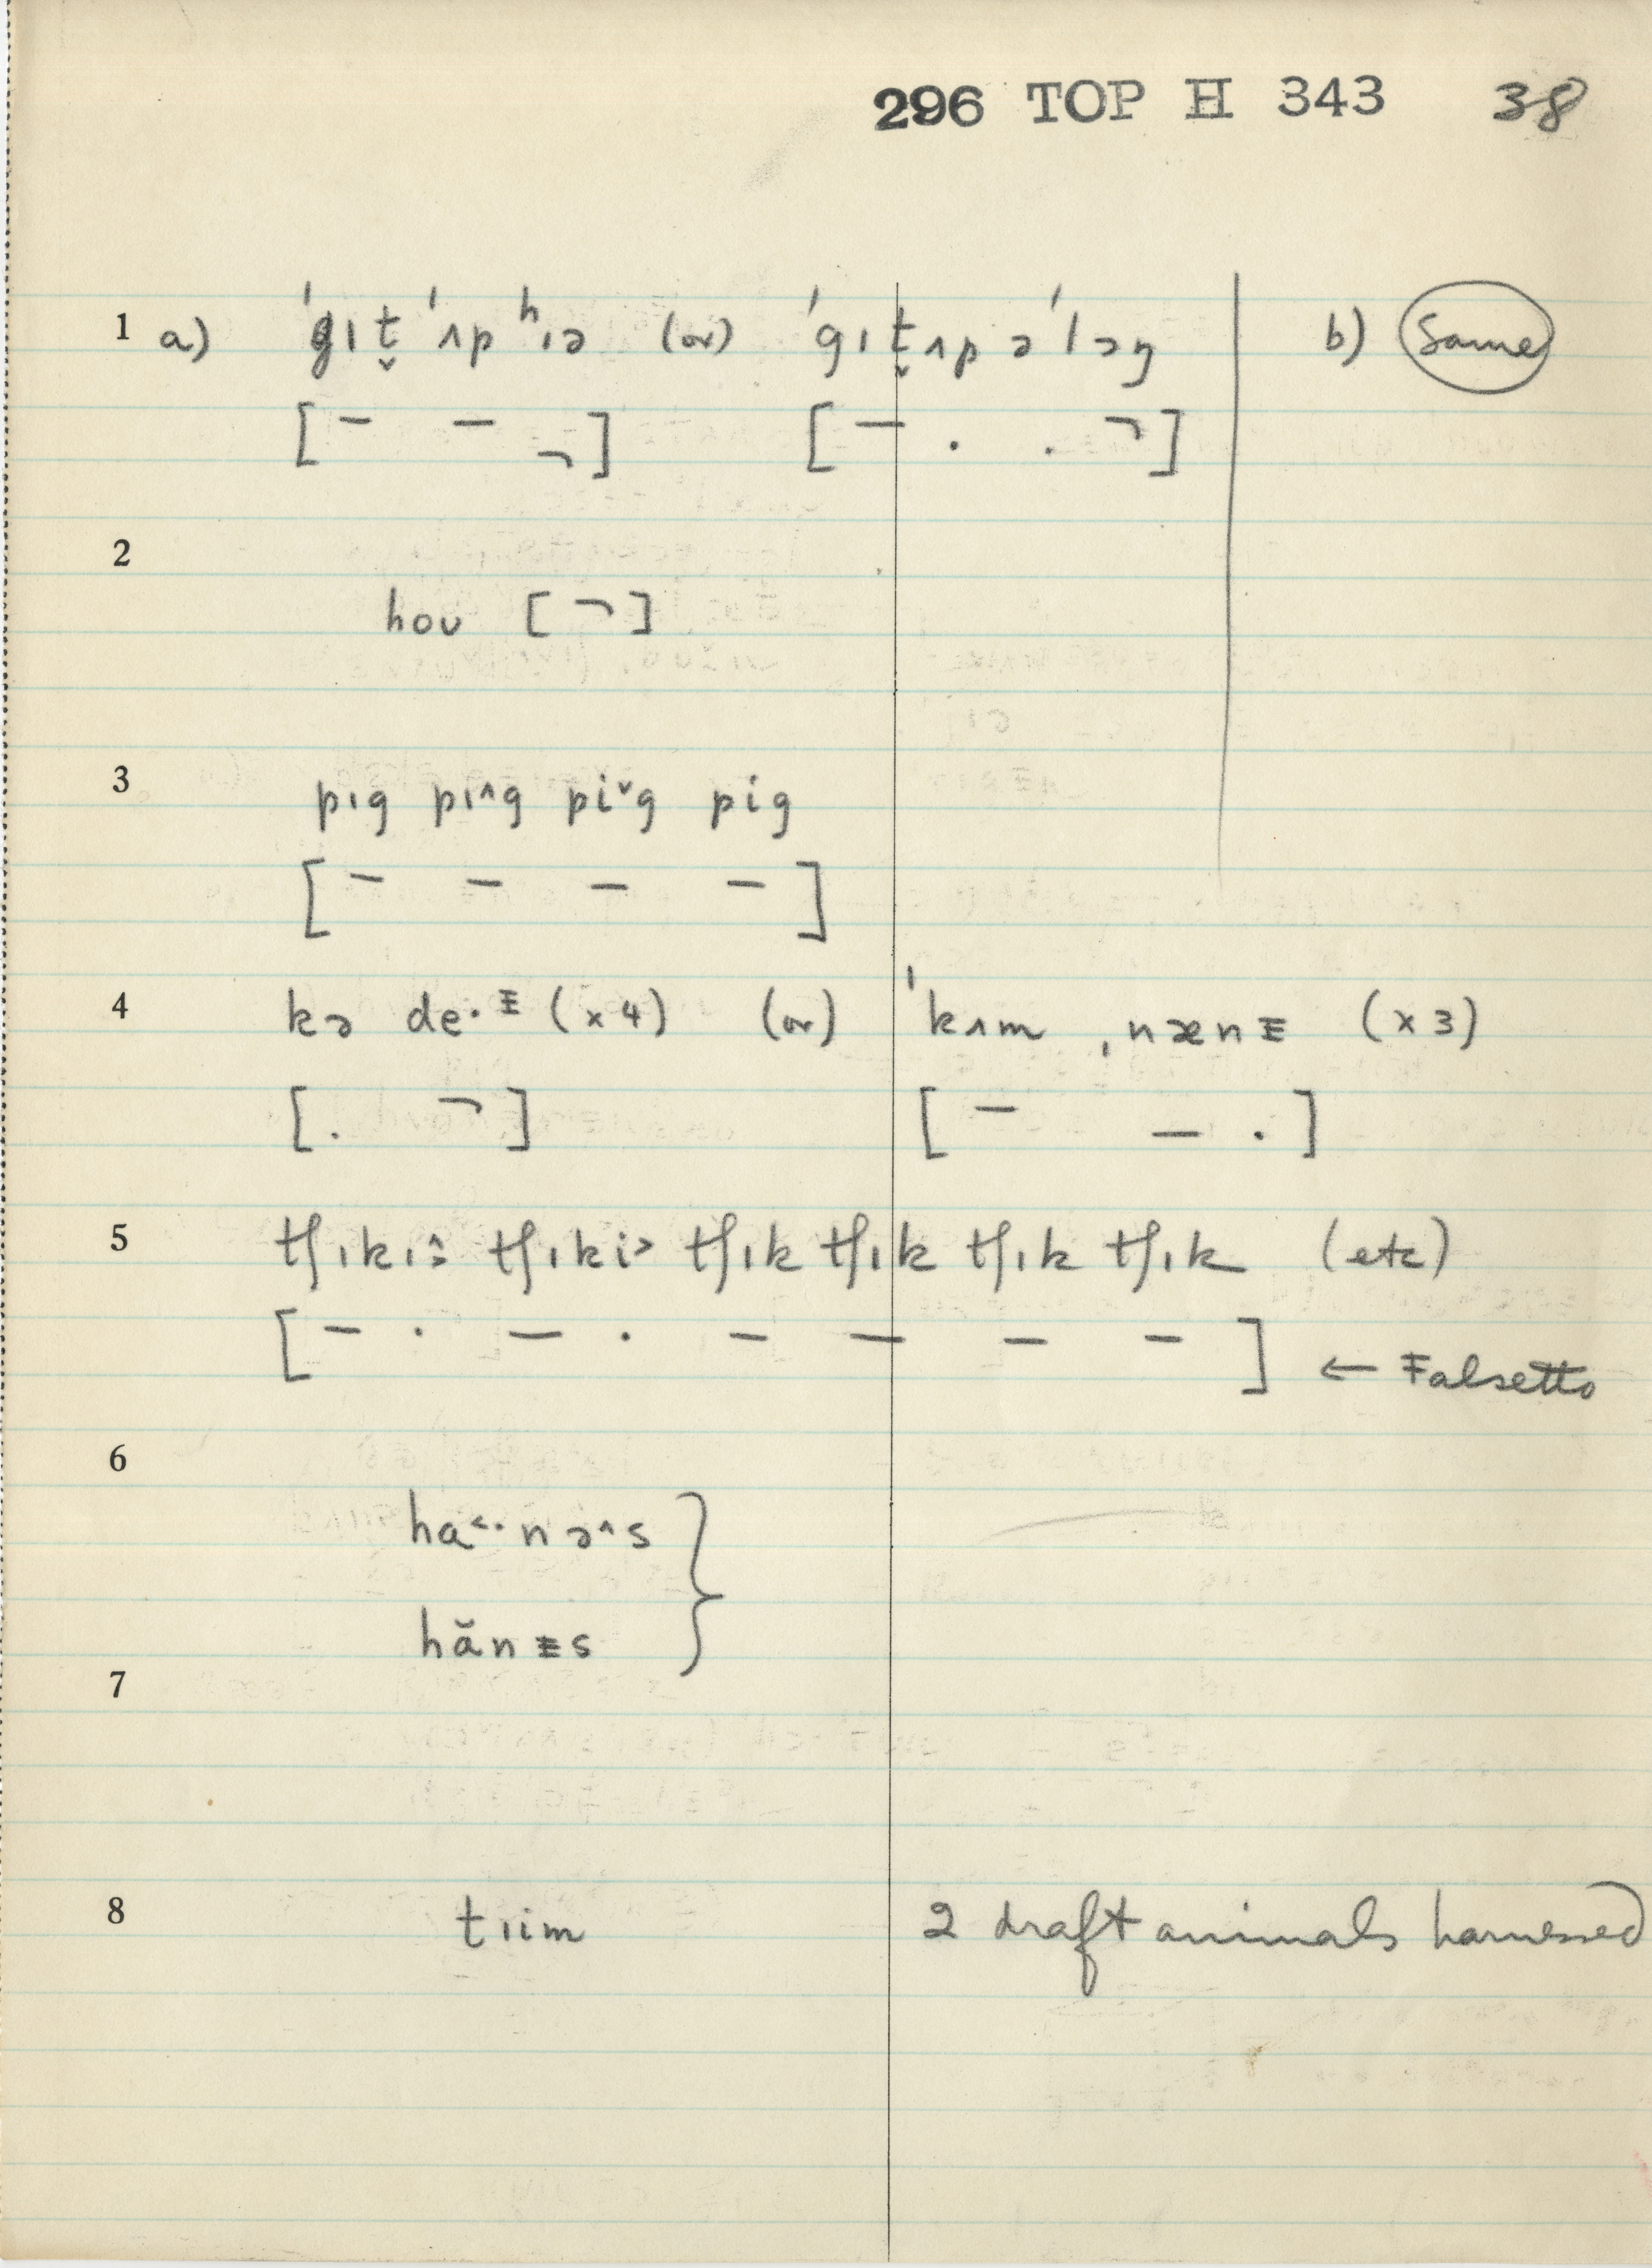 296 TOP H 343 38
1 a) ˈgɪt̬ˈʌp ʰɪə (or) ˈgɪt̬ʌp əˈlɔŋ b) Same
[ – – ¬ ] [ – . . ¬ ]
2
hoʊ [ ¬ ]
3 pɪg pɪ^g piˇg pig
[ – – – – ]
4 kə de·ᵻ (x4) (or) ˈkʌm ˌnænᵻ (x3)
[ . ¬ ] [ – – . ]
5 tʃɪkɪ^: tʃɪki> tʃɪk tʃɪk tʃɪk tʃɪk (etc)
[ – · – · – – – – ] ← Falsetto
6
ha<·nə^s
hănᵻs
7
8 tɪim 2 draft animals harnessed